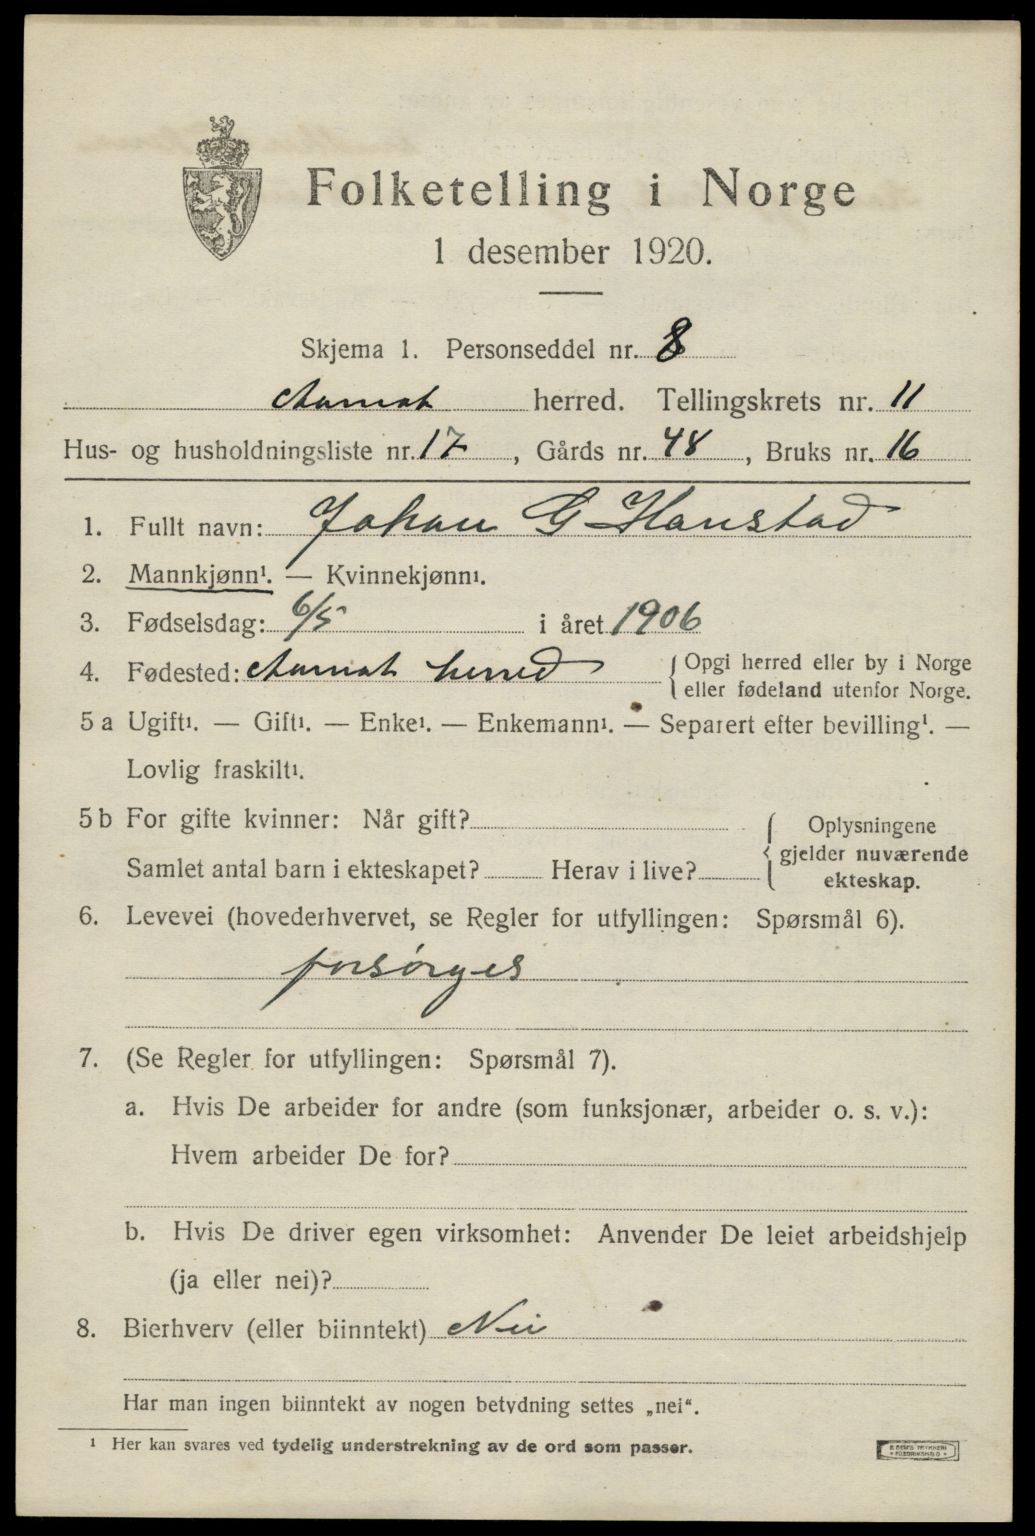 Folketelling i Norge
1 desember 1920.
Skjema 1. Personseddel nr. 8
Aamot herred. Tellingskrets nr. 11
Hus- og husholdningsliste nr. 17, Gårds nr. 48, Bruks nr. 16
1. Fullt navn: Johan G Hanstad
2. Mannkjønn¹. — Kvinnekjønn¹.
3. Fødselsdag: 6/5 i året 1906
4. Fødested: Aamot herred { Opgi herred eller by i Norge
eller fødeland utenfor Norge.
5 a Ugift¹. — Gift¹. — Enke¹. — Enkemann¹. — Separert efter bevilling¹. —
Lovlig fraskilt¹.
5 b For gifte kvinner: Når gift? { Oplysningene
gjelder nuværende
Samlet antal barn i ekteskapet? Herav i live?
ekteskap.
6. Levevei (hovederhvervet, se Regler for utfyllingen: Spørsmål 6).
forsørges
7. (Se Regler for utfyllingen: Spørsmål 7).
a. Hvis De arbeider for andre (som funksjonær, arbeider o. s. v.):
Hvem arbeider De for?
b. Hvis De driver egen virksomhet: Anvender De leiet arbeidshjelp
(ja eller nei)?
8. Bierhverv (eller biinntekt) Nei
Har man ingen biinntekt av nogen betydning settes „nei“.
¹ Her kan svares ved tydelig understrekning av de ord som passer.